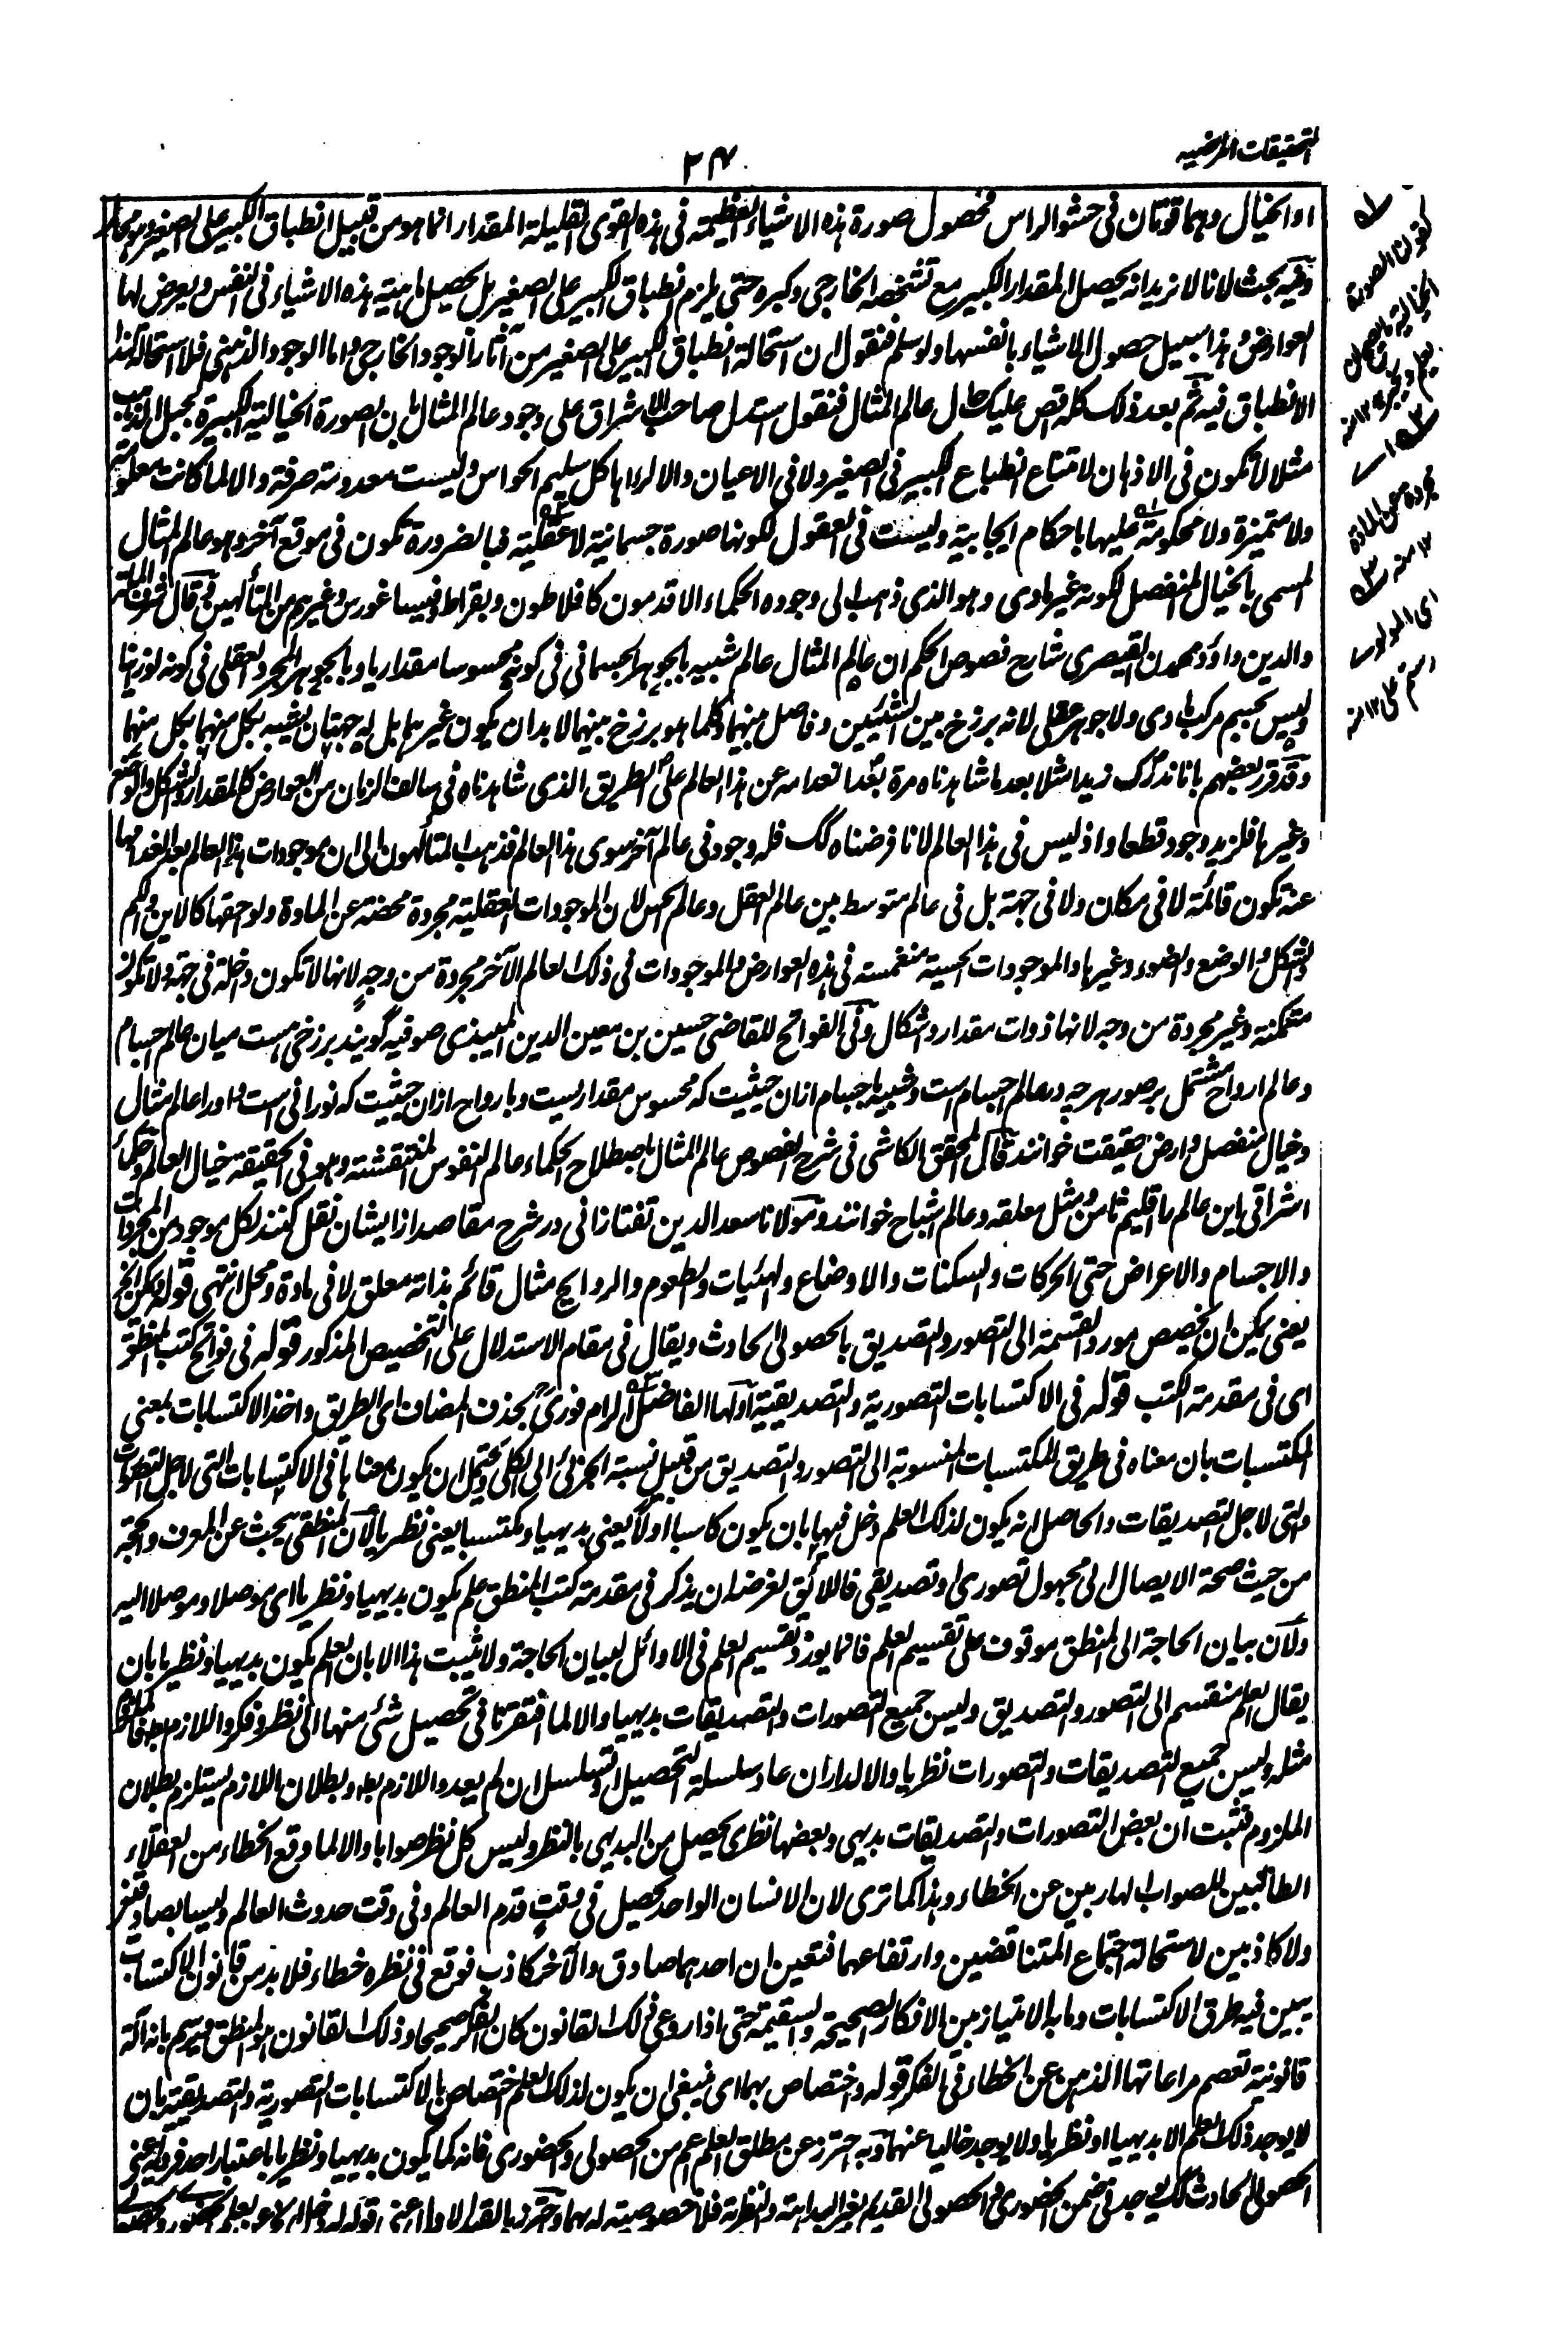 التحقيقات المرضيه
٢٤
او الخيال وهما قوتان فى حشو الراس فحصول صورة هذه الاشياء العظيمة فى هذه القوى القليلة المقدار انما هو من قبيل انطباق الكبير على الصغير وهو محال
وفيه بحث لانا لا نريد انه يحصل المقدار الكبير مع تشخصه الخارجى وكبره حتى يلزم انطباق الكبير على الصغير بل يحصل ماهية هذه الاشياء فى النفس ويعرض لها
العوارض وهذا سبيل حصول الاشياء بانفسها ولو سلم فنقول ان استحالة انطباق الكبير على الصغير من آثار الوجود الخارجى واما الوجود الذهنى فلا استحالة لهذا
الانطباق فيه ثم بعد ذلك كله قص عليك حال عالم المثال فنقول استدل صاحب الاشراق على وجود عالم المثال بان الصورة الخيالية الكبيرة كجبل الذهب
مثلا لا تكون فى الاذهان لامتناع انطباع الكبير فى الصغير ولا فى الاعيان والا لراها كل سليم الحواس وليست معدومة صرفة والا لما كانت معلومة
ولا متميزة ولا محكومة عليها باحكام ايجابية وليست فى العقول لكونها صورة جسمانية لا عقلية فبالضرورة تكون فى موقع آخر وهو عالم المثال
المسمى بالخيال المنفصل لكونه غير مادى وهو الذى ذهب الى وجوده الحكماء الاقدمون كافلاطون وبقراط وفيساغورس وغيرهم من المتألهين قال شرف الملة
والدين داؤد محمدن القيصرى شارح فصوص الحكم ان عالم المثال عالم شبيه بالجوهر الجسمانى فى كونه محسوسا مقداريا وبالجوهر المجرد العقلى فى كونه نورانيا
وليس بجسم مركب مادى ولا جوهر عقلى لانه برزخ بين الشيئين وفاصل بينهما وكلما هو برزخ بينهما لابد ان يكون غيرهما بل له جهتان يشبه بكل منهما بكل منهما
وقد قرر بعضهم بانا ندرك زيدا مثلا بعد ما شاهدناه مرة بعد انعدامه عن هذا العالم على الطريق الذى شاهدناه فى سالف الزمان من العوارض كالمقدار والشكل والوضع
وغيرها فلزيد وجود قطعا واذ ليس فى هذا العالم لانا فرضناه كك فله وجود فى عالم آخر سوى هذا العالم فذهب المتألهون الى ان موجودات هذا العالم بعد انعدامها
عنه تكون قائمة لا فى مكان ولا فى جهة بل فى عالم متوسط بين عالم العقل وعالم الحس لان الموجودات العقلية مجردة محضة عن المادة ولواحقها كالاين والكم
والشكل والوضع والضوء وغيرها والموجودات الحسية منغمسة فى هذه العوارض والموجودات فى ذلك العالم الآخر مجردة من وجه لانها لا تكون داخلة فى جهة ولا تكون
متمكنة وغير مجردة من وجه لانها ذوات مقدار واشكال وفى الفواتح للقاضى حسين بن معين الدين الميبذى صوفيه گويند برزخى هست ميان عالم اجسام
وعالم ارواح مشتمل بر صور هرچه در عالم اجسام است وشبيه باجسام ازان حيثيت كه محسوس مقداريست وبارواح ازان حيثيت كه نورانى است واورا عالم مثال
وخيال منفصل وارض حقيقت خوانند قال المحقق الكاشى فى شرح الفصوص عالم المثال باصطلاح الحكماء عالم النفوس المنتقشة وهو فى الحقيقة خيال العالم وحكماء
اشراقى اين عالم را اقليم ثامن ومثل معلقه وعالم اشباح خوانند ومولانا سعد الدين تفتازانى در شرح مقاصد از ايشان نقل كنند لكل موجود من المجردات
والاجسام والاعراض حتى الحركات والسكنات والاوضاع والهيئات والطعوم والروايح مثال قائم بذاته معلق لا فى مادة ومحل انتهى قوله يمكن الخ
يعنى يمكن ان يخصص مورد القسمة الى التصور والتصديق بالحصولى الحادث ويقال فى مقام الاستدلال على التخصيص المذكور قوله فى فواتح كتب المنطق
اى فى مقدمة الكتب قوله فى الاكتسابات التصورية والتصديقية اولها الفاضل الرامفورى بحذف المضاف اى الطريق واخذ الاكتسابات بمعنى
المكتسبات بان معناه فى طريق المكتسبات المنسوبة الى التصور والتصديق من قبيل نسبة الجزئى الى الكلى ويحتمل ان يكون معناها فى الاكتسابات التى لاجل التصورات
والتى لاجل التصديقات والحاصل انه يكون لذلك العلم دخل فيها بان يكون كاسبا اولا يعنى بديهيا ومكتسبا يعنى نظريا لان المنطقى يبحث عن المعرف والحجة
من حيث صحة الايصال الى مجهول تصورى او تصديقى فاللائق لغرضه ان يذكر فى مقدمة كتب المنطق علم يكون بديهيا ونظريا اى موصلا وموصلا اليه
ولان بيان الحاجة الى المنطق موقوف على تقسيم العلم فانما يورد تقسيم العلم فى الاوائل لبيان الحاجة ولا يثبت هذا الا بان العلم يكون بديهيا ونظريا بان
يقال العلم منقسم الى التصور والتصديق وليس جميع التصورات والتصديقات بديهيا والا لما افتقرنا فى تحصيل شئ منها الى نظر وفكر واللازم بط فالملزوم
مثله وليس جميع التصديقات والتصورات نظريا والا لدار ان عاد سلسلة التحصيل او تسلسل ان لم يعد واللازم بط وبطلان اللازم يستلزم بطلان
الملزوم فثبت ان بعض التصورات والتصديقات بديهى وبعضها نظرى يحصل من البديهى بالنظر وليس كل نظر صوابا والا لما وقع الخطاء من العقلاء
الطالبين للصواب الهاربين عن الخطاء وهذا كما ترى لان الانسان الواحد يحصل فى وقت قدم العالم وفى وقت حدوث العالم وليسا بصادقين
ولا كاذبين لاستحالة اجتماع المتناقضين وارتفاعهما فتعين ان احدهما صادق والآخر كاذب فوقع فى نظره خطاء فلا بد من قانون الاكتساب
يبين فيه طرق الاكتسابات وما به الامتياز بين الافكار الصحيحة والسقيمة حتى اذا روعى ذلك القانون كان الفكر صحيحا وذلك القانون هو المنطق ويرسم بانه آلة
قانونية تعصم مراعاتها الذهن عن الخطاء فى الفكر قوله واختصاص بهما اى ينبغى ان يكون لذلك العلم اختصاص بالاكتسابات التصورية والتصديقية بان
لا يوجد ذلك العلم الا بديهيا او نظريا ولا يوجد خاليا عنهما وبه احترز عن مطلق العلم اعم من الحصولى والحضورى فانه كما يكون بديهيا ونظريا باعتبار احد فرديه اعنى
الحصولى الحادث كك يوجد فى ضمن الحضورى والحصولى القديم بغير البداهة والنظرية فلا خصوصية له بهما
كقولنا الصورة
الخيالية
١٢ منه
مجردة عن المادة
١٢ منه
اى المولوى
١٢ منه